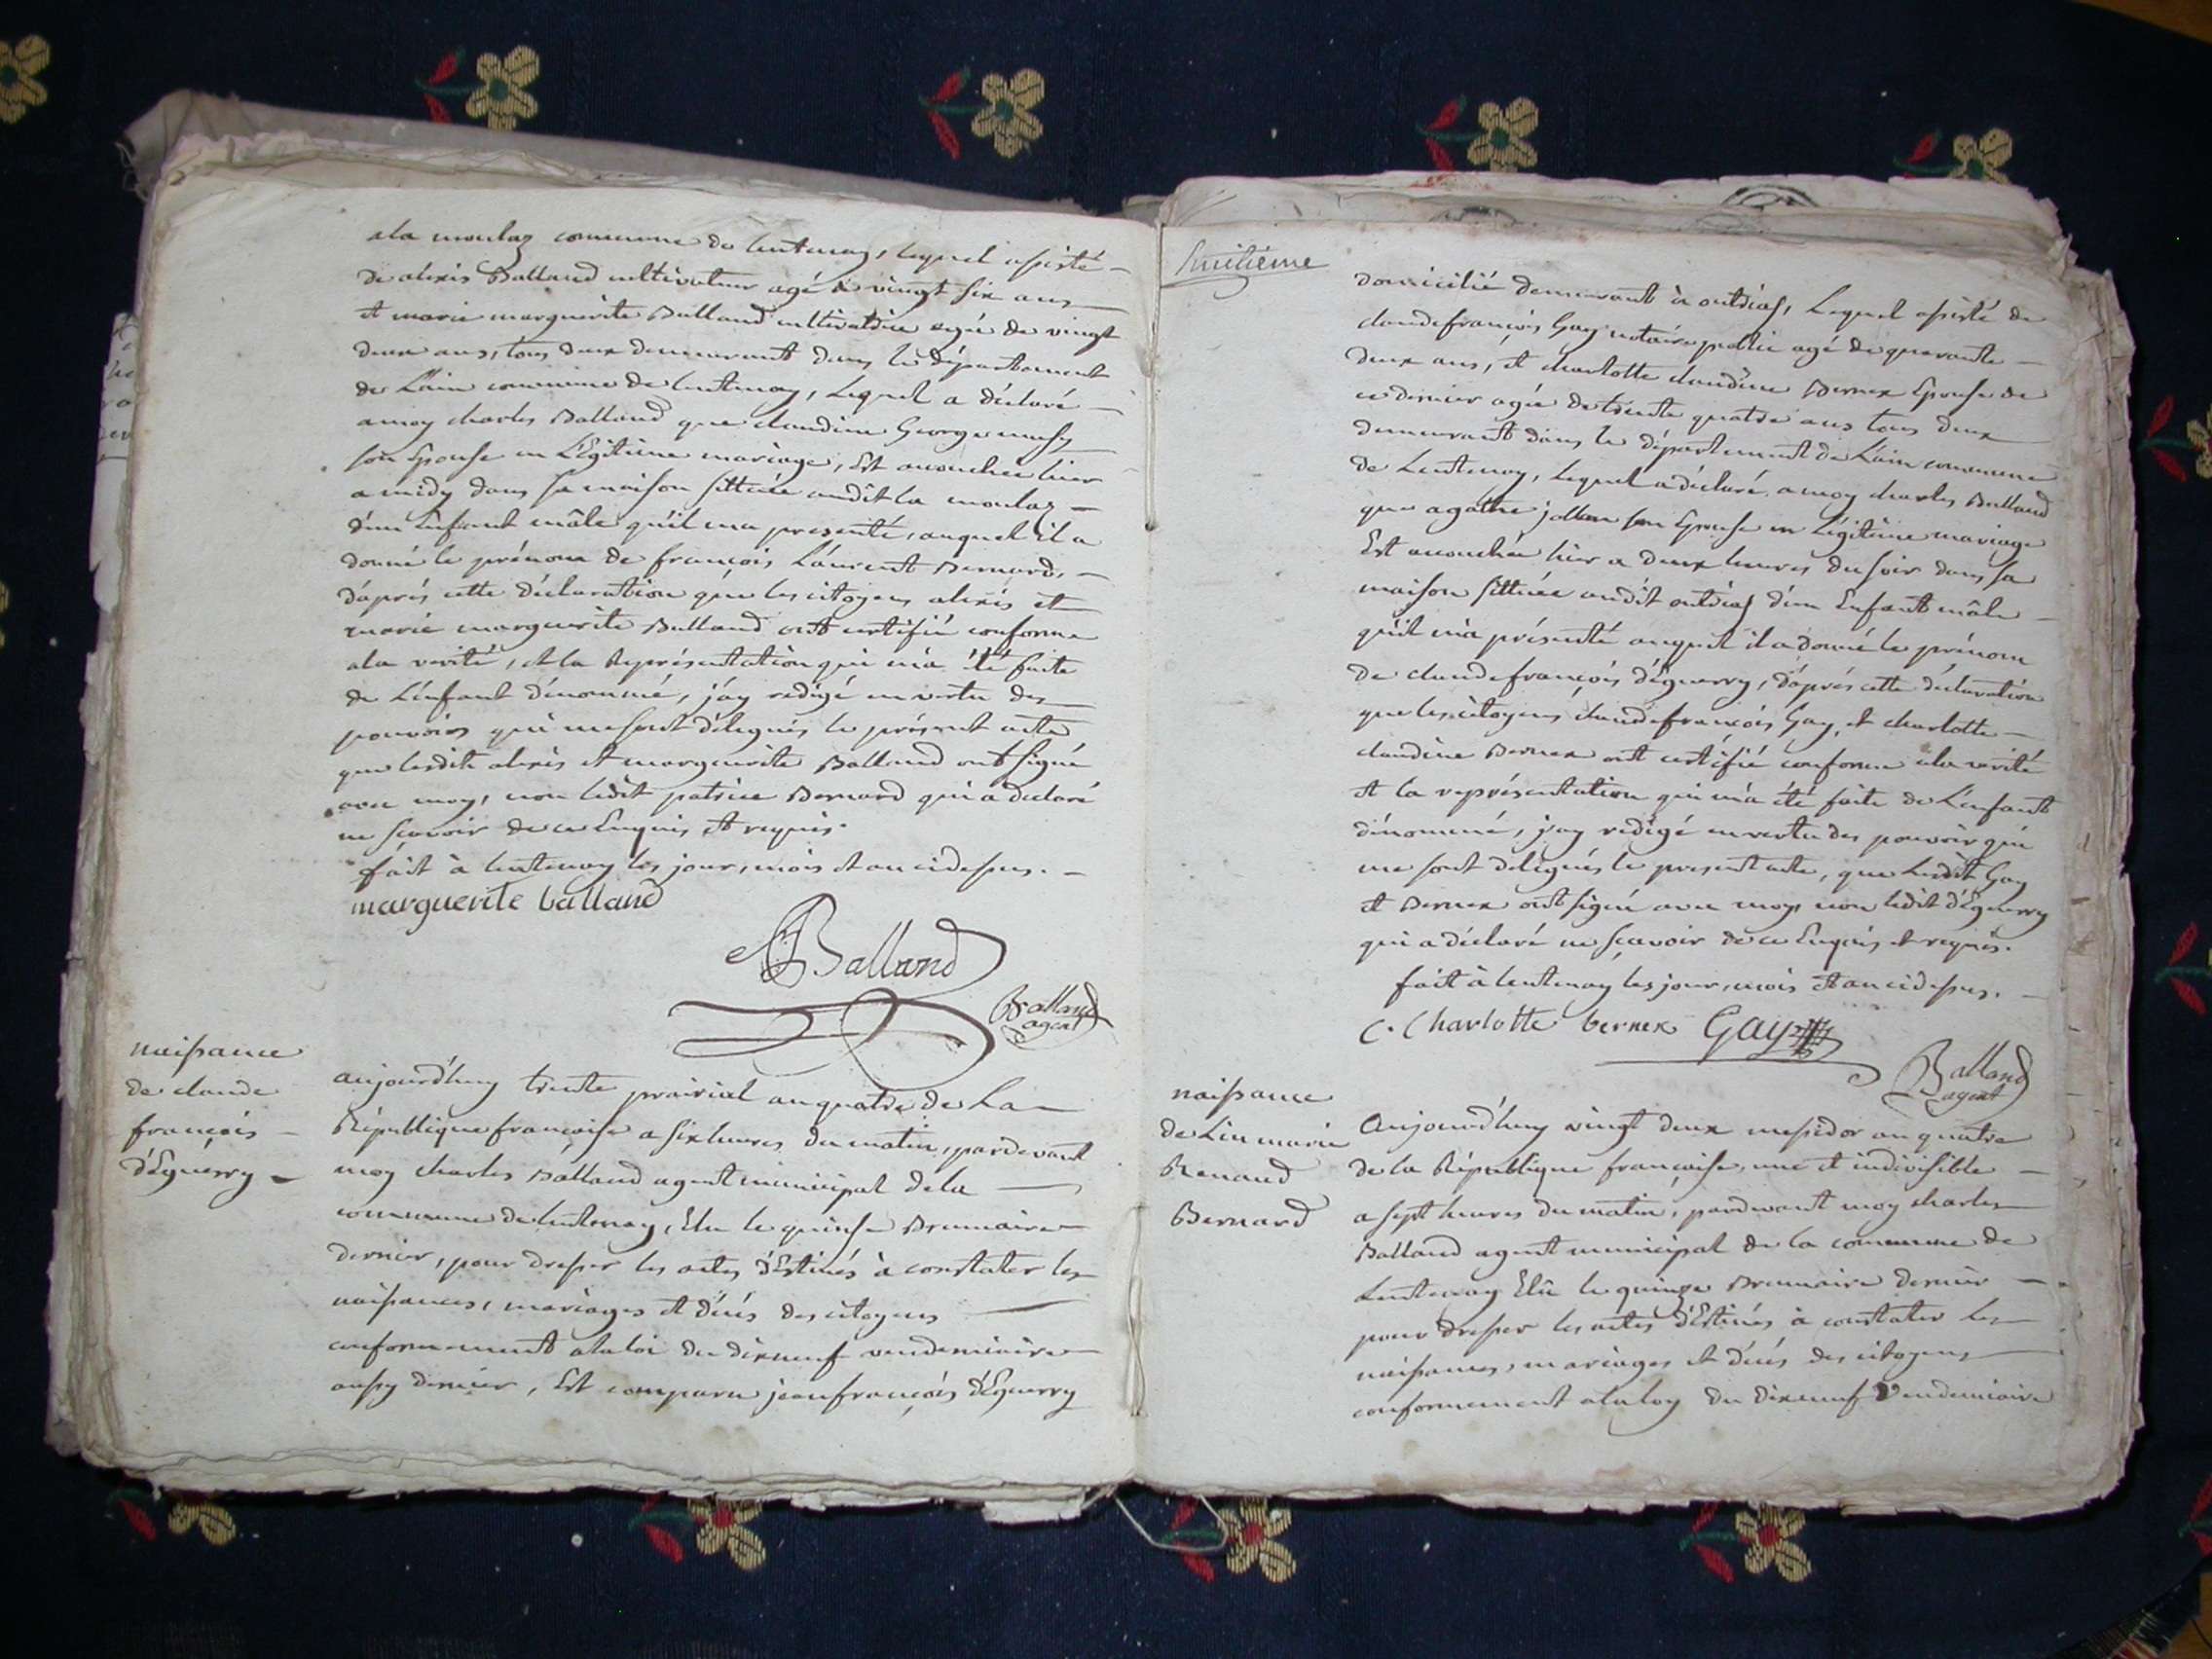 ala moulaz commune de lentenay, lequel assisté
de alexis Balland cultivateur agé de vingt six ans
et marie marguerite Balland cultivatrice agée de vingt
deux ans, tous deux demeurant dans le département
de L'ain commune de lentenay, Lequel a déclaré
a moy charles Balland que claudine
son Epouse en Légitime mariage, Est accouchée hier
a midy dans sa maison sittuée audit la moulaz
d'un Enfant mâle qu'il ma presenté, auquel il a
donné le prénom de françois Laurent Bernard,
d'aprés cette déclaration que les citoyens alexis et
marie marguerite Balland ont certifié conforme
ala verité, et la Représentation qui m'a été faite
de L'enfant dénommé, j'ay redigé en vertu des
pouvoirs qui me sont délegués le présent acte
que lesdits alexis et marguerite Balland ont signé
avec moy, non ledit patrice Bernard qui a declaré
ne scavoir de ce Enquis et requis.
fait à lentenay les jour, mois et an cidessus.
marguerite balland
Balland
Balland
agent
naissance
de claude
françois
d'Eguerry
aujourd'huy trente prairial an quatre de La
République francaise a six heures du matin, pardevant
moy charles Balland agent municipal dela
commune de lentenay, Elu le quinse Brumaire
dernier, pour dresser les actes d'Estinés à constater les
naissances, mariages et décés des citoyens
conformement ala loi du dixneuf vendemiaire
aussy dernier, Est comparu jean françois d'Eguerry
huitième
domicilié demeurant à outriaz, Lequel assisté de
claude françois Gay notaire public agé de quarante
deux ans, et charlotte claudine Bernex Epouse de
ce dernier agée de trente quatre ans tous deux
demeurant dans le département de L'ain commune
de Lentenay, lequel a déclaré a moy charles Balland
que agathe son Epouse en Légitime mariage
Est accouchée hier a deux heures du soir dans sa
maison sittuée audit outriaz d'un Enfant mâle
qu'il m'a présenté auquel il a donné le prénom
de claude françois d'éguerry, d'aprés cette déclaration
que les citoyens claude françois Gay, et charlotte
claudine Bernex ont certifié conforme ala verité
et la représentation qui m'a été faite de L'enfant
dénommé, j'ay redigé en vertu des pouvoir qui
me sont delegués le present acte, que Ledit Gay
et Bernex ont signé avec moy, non ledit d'Eguerry
qui a déclaré ne scavoir de ce Enquis et requis.
fait à lentenay les jour, mois et an cidessus.
C. Charlotte bernex Gay
Balland
agent
naissance
de marie
Renaud
Bernard
Aujourd'huy vingt deux messidor an quatre
de la République française, une et indivisible
a sept heures du matin, pardevant moy charles
Balland agent municipal de la commune de
Lentenay Elû le quinze Brumaire dernier
pour dresser les actes d'Estinés à constater les
naissances, mariages et décés des citoyens
conformement ala loy du dixneuf Vendemiaire